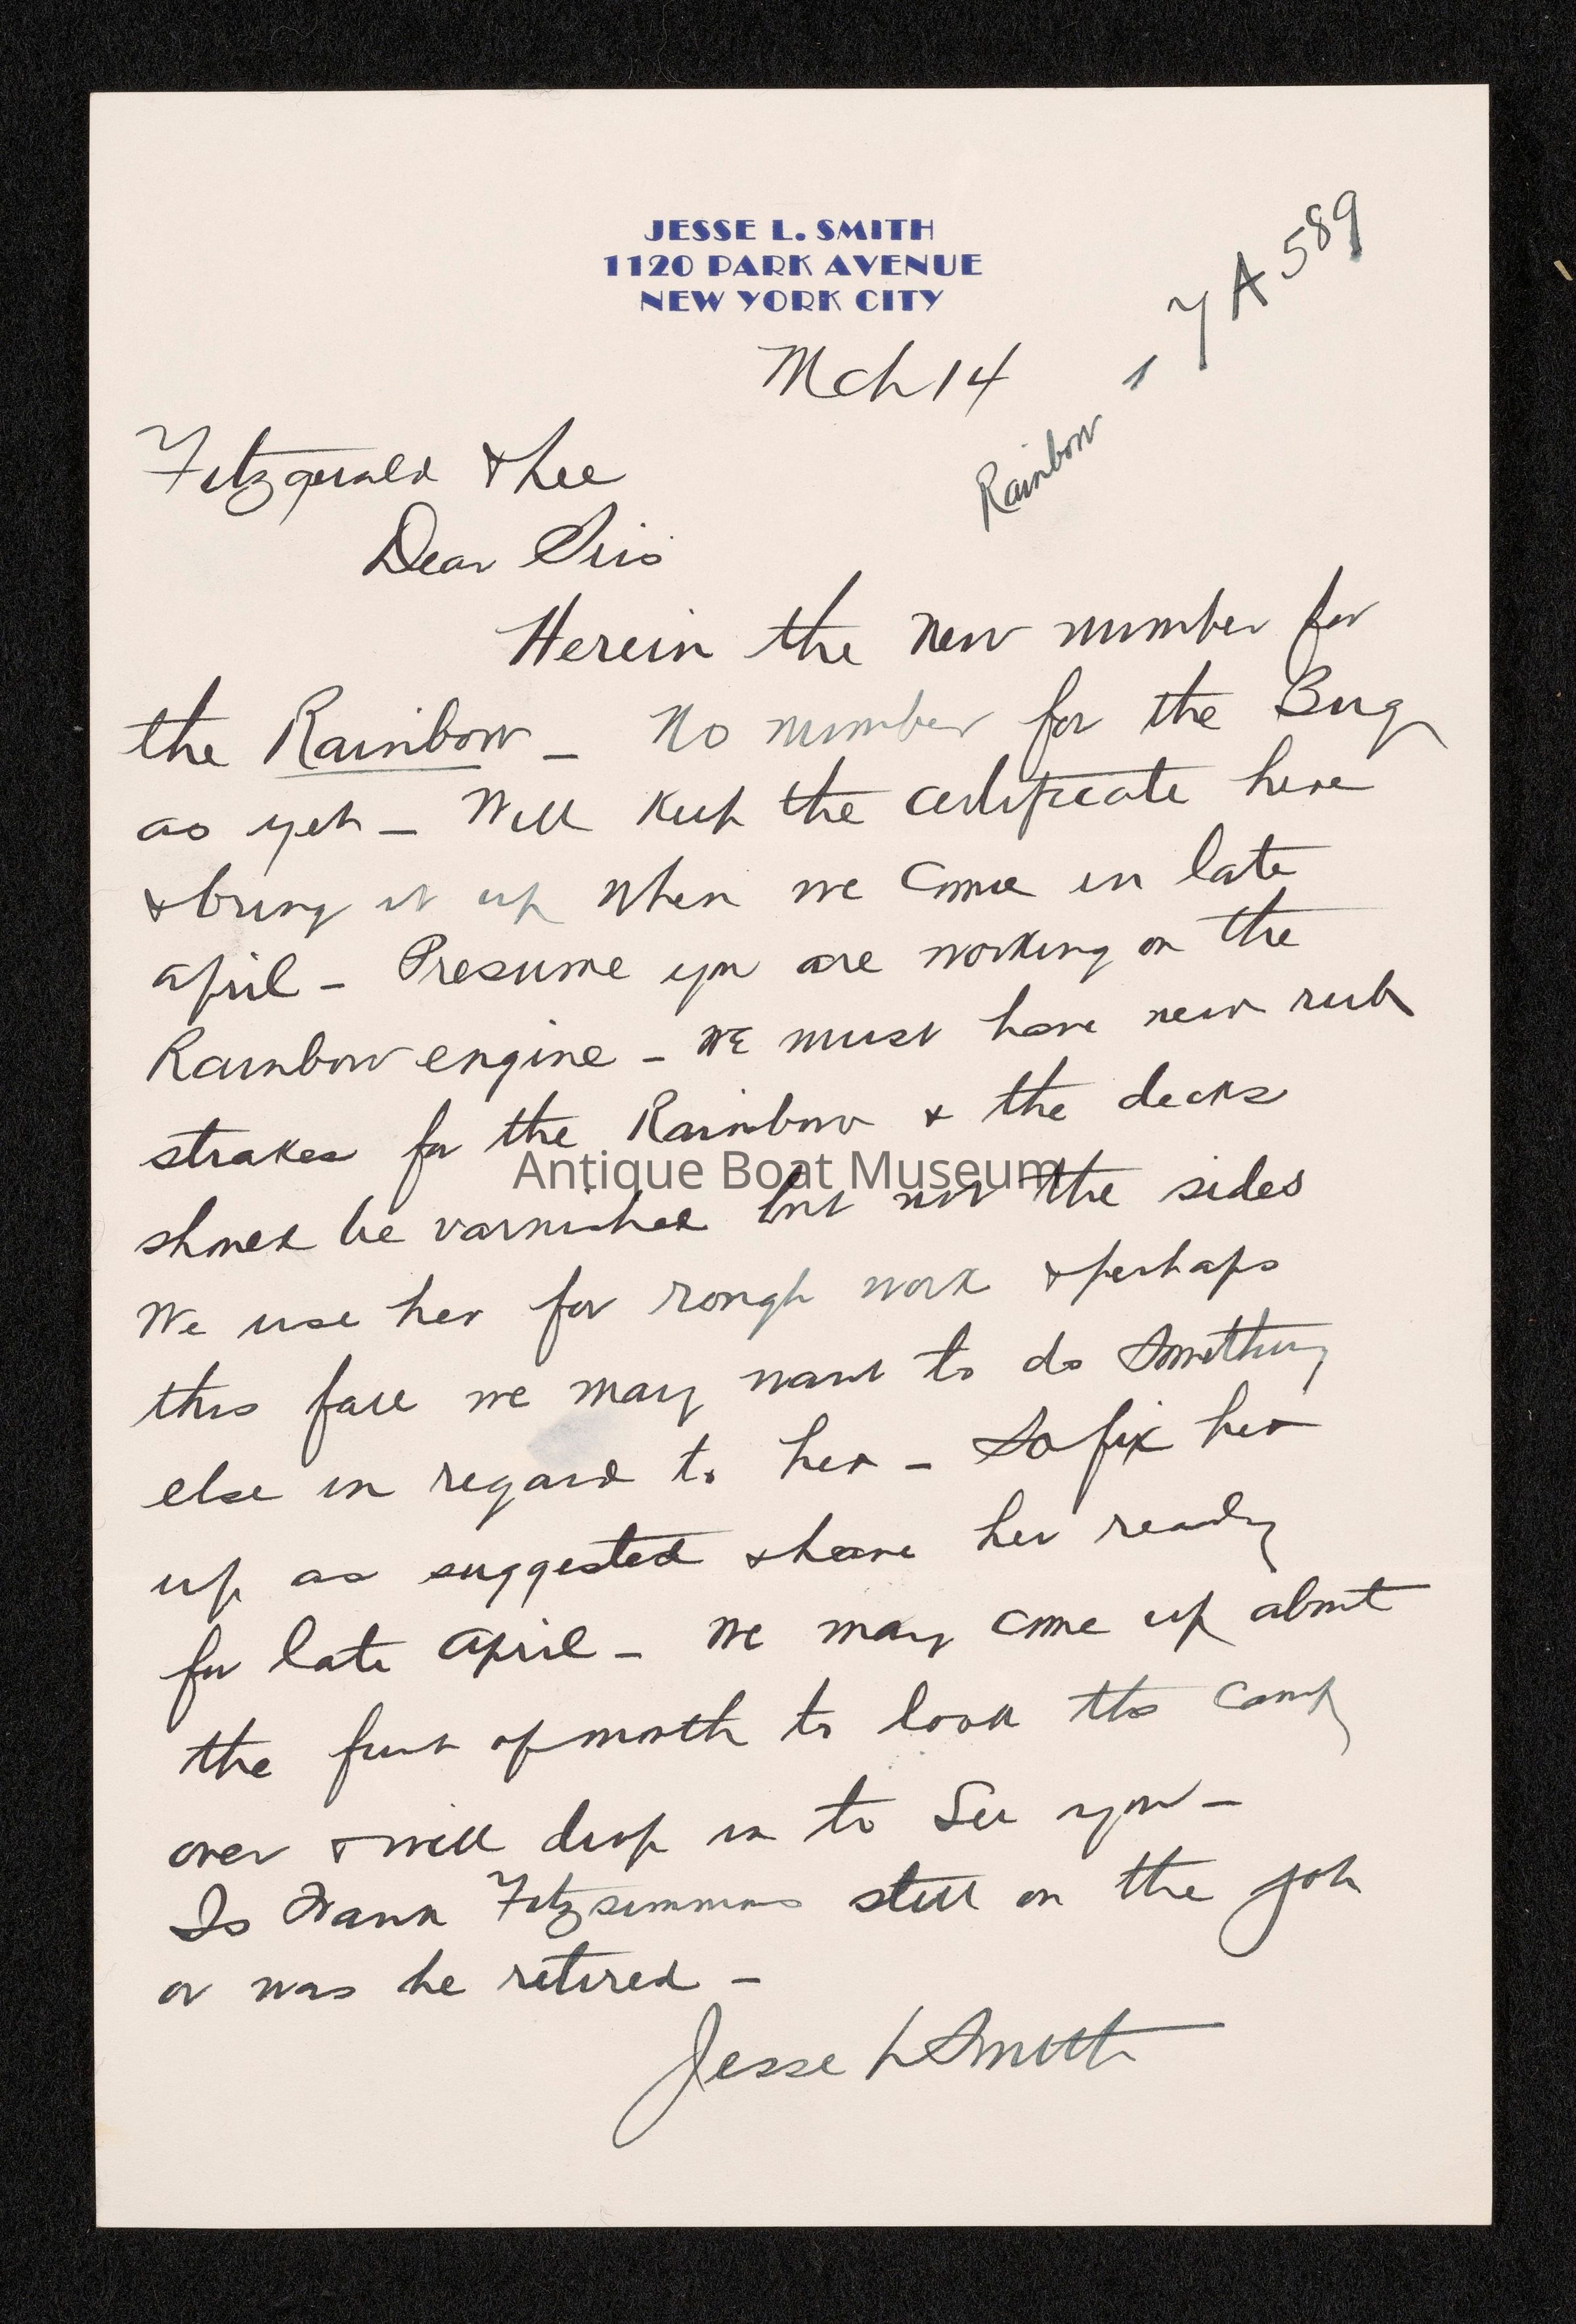 JESSE L. SMITH
1120 PARK AVENUE
NEW YORK CITY
Rainbow - 7A589
Mch 14
Fitzgerald & Lee
Dear Sirs
Herein the new number for
the Rainbow - No number for the Bug
as yet - Will keep the certificate here
& bring it up when we come in late
april - Presume you are working on the
Rainbow engine - We must have new rub
strakes for the Rainbow & the decks
Antique Boat Museum
should be varnished but not the sides
We use her for rough work & perhaps
this fall we may want to do something
else in regard to her - So fix her
up as suggested & have her ready
for late april - We may come up about
the first of month to look the camp
over & will drop in to see you -
Is Frank Fitzsimmons still on the job
or was he retired -
Jesse L Smith